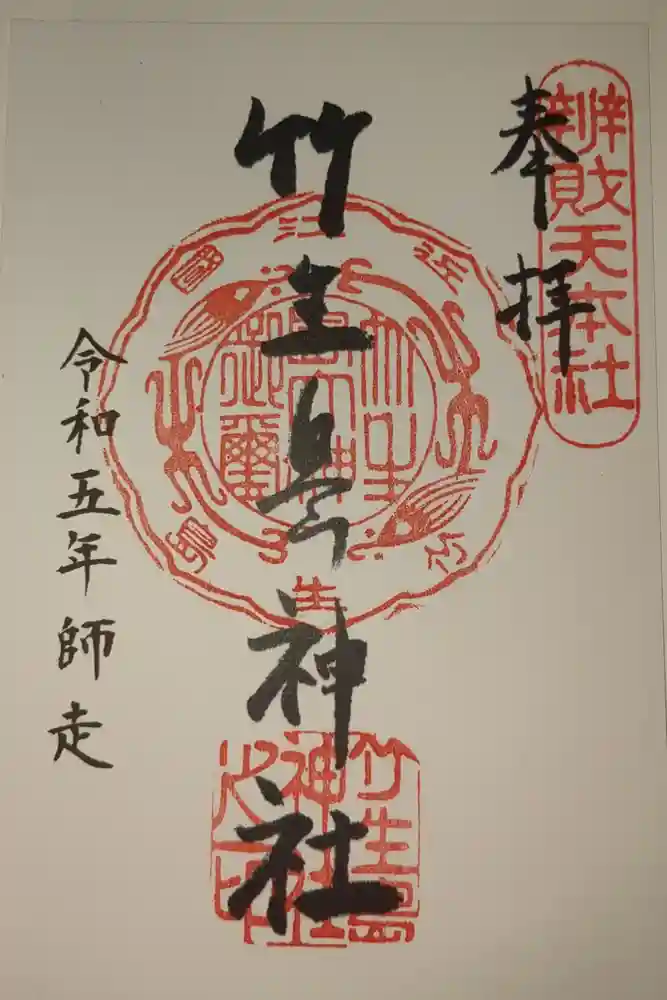 奉拝
辨財天本社
竹生島神社
近江
竹生島
竹生島
神社
之印
令和五年師走